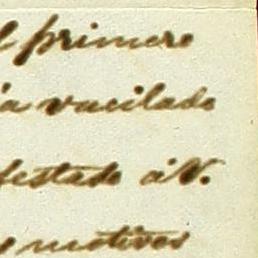 l primero
a vacilado
festado á V.
y motivos